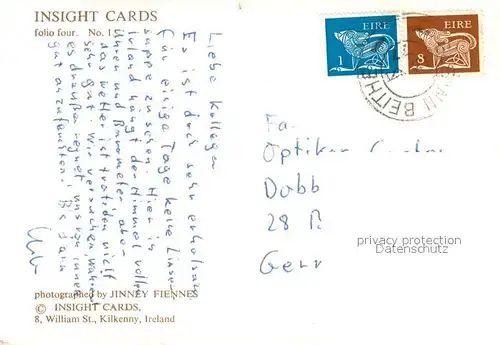 INSIGHT CARDS
folio four. No. 1
Liebe Kollegen
Es ist doch sehr erholsam
für einige Tage keine Linsen
suppe zu sehen. Hier in
Irland hängt der Himmel voller
Uhren und Barometer, aber
das Wetter ist trotzdem nicht
sehr gut. Wir versuchen, während
es draußen regnet uns von innen
gut anzufeuchten! Bis dann
photographed by JINNEY FIENNES
© INSIGHT CARDS,
8, William St., Kilkenny, Ireland
EIRE
1
EIRE
8
BEITHE
Fa.
Optiker
Dobb
28
Gern
privacy protection
Datenschutz